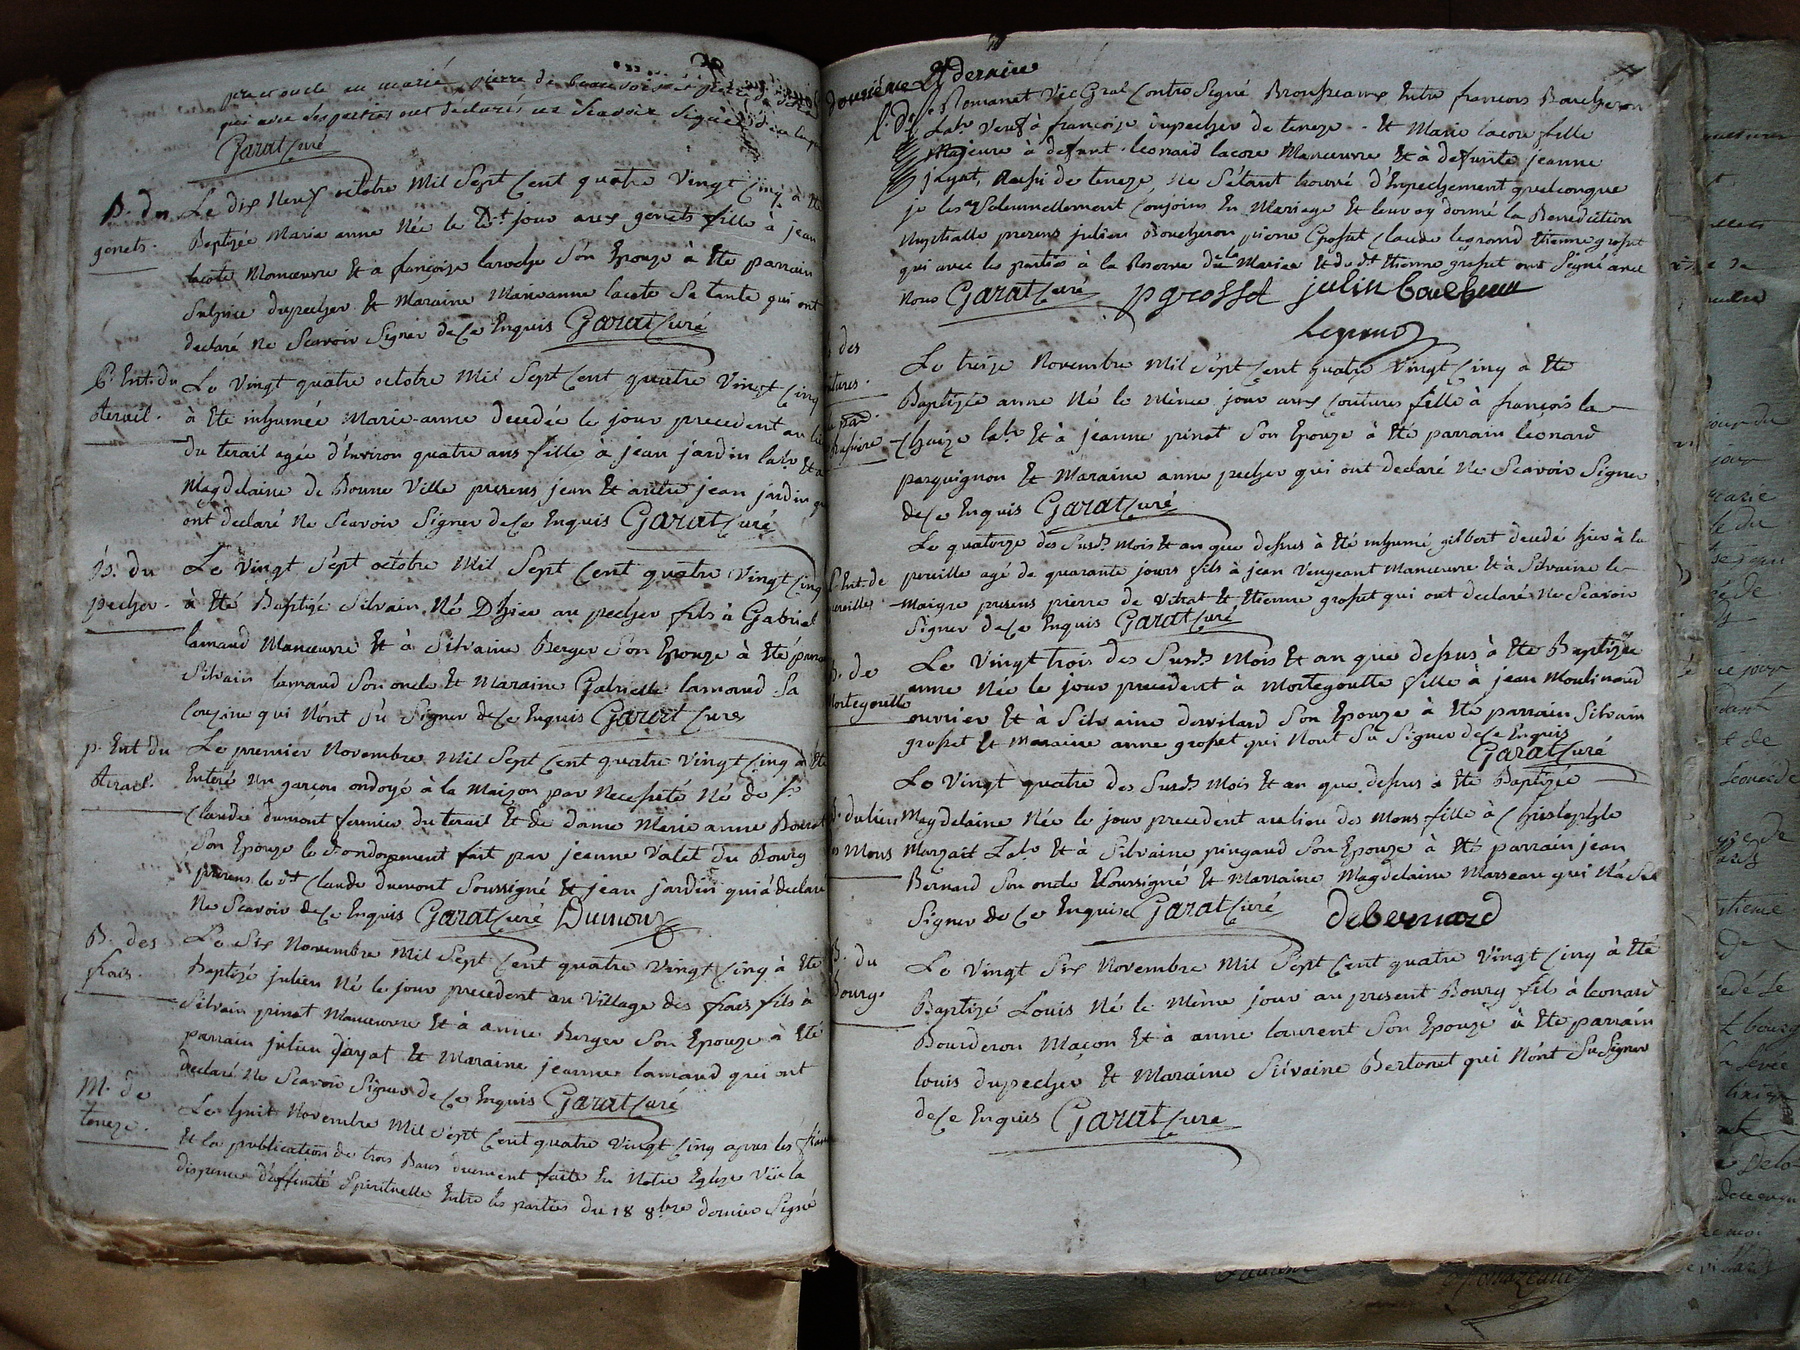 pierre de
qui avec les parties ont declaré ne Scavoir Signer
Garat Curé
B. du
genets.
Le dix Neuf octobre Mil Sept Cent quatre Vingt Cinq à Eté
Baptizée Marie anne Née le Dt jour aux genets fille à jean
lacote Manœuvre Et a françoise laroche Son Epouze à Ete parrain
Sulpice dupecher Et Maraine Marieanne lacote Sa tante qui ont
declaré Ne Scavoir Signer de Ce Enquis Garat Curé
Ent. du
terail.
Le Vingt quatre octobre Mil Sept Cent quatre Vingt Cinq
à Eté inhumée Marie-anne decedée le jour precedent au
du terail agée d'Environ quatre ans fille à jean jardin labr Et a
Magdelaine de Bonne Ville presens jean Et autre jean jardin
ont declaré Ne Scavoir Signer de Ce Enquis Garat Curé
B. du
pecher.
Le Vingt Sept octobre Mil Sept Cent quatre Vingt Cinq
à Eté Baptizé Silvain Né D'hier au pecher fils à Gabriel
lamaud Manœuvre Et à Silvaine Berger Son Epouze à Eté
Silvain lamaud Son oncle Et Maraine Gabrielle lamaud Sa
Couzine qui N'ont Su Signer de Ce Enquis Garat Curé
p. Ent du
terail.
Le premier Novembre Mil Sept Cent quatre Vingt Cinq à Eté
Enteré un garçon ondoyé à la Maizon par Necessité Né de Sr
Claude dumont fermier du terail Et de dame Marie anne
Son Epouze le d. ondoyement fait par jeanne Valet du Bourg
presens le dt Claude dumont Soussigné Et jean jardin qui a declaré
Ne Scavoir de Ce Enquis Garat Curé Dumont
B. des
frais.
Le Six Novembre Mil Sept Cent quatre Vingt Cinq à Eté
Baptizé julien Né le jour precedent au Village des frais fils à
Silvain pinet Manœuvre Et à anne Berger Son Epouze à Eté
parrain julien jayat Et Maraine jeanne lamaud qui ont
declaré Ne Scavoir Signer de Ce Enquis Garat Curé
M. de
teneze.
Le huit Novembre Mil Sept Cent quatre Vingt Cinq apres les
Et la publication de trois Bans duement faite En Notre Eglise Vüe la
dispense d'affinité Spirituelle Entre les parties du 18 8bre dernier Signé
douzième et dernier
Romanet Vic Gral Contre Signé Entre francois Boucheron
labr Veuf à françoise dupecher de teneze. Et Marie lacore fille
Majeure à defunt leonard lacore Manœuvre Et à defunte jeanne
jayat, aussi de teneze, Ne S'étant trouvé d'Enpechement quelconque
je les ay Solemnellement Conjoins En Mariage Et leur ay donné la Benediction
Nuptialle presens julien Boucheron pierre Grosset Claude legrand Etienne grosset
qui avec les parties à la Reserve de la Mariée Et du dt Etienne grosset ont Signé avec
Nous Garat Curé pgrosset julin
Legrand
des
Le treize Novembre Mil Sept Cent quatre Vingt Cinq à Ete
Baptizée anne Né le même jour aux Coutures fille à francois la
Chaize labr Et à jeanne pinet Son Epouze à Ete parrain leonard
parquignon Et Maraine anne pecher qui ont declaré Ne Scavoir Signer
de Ce Enquis Garat Curé
Ent. de
Le quatorze des Susds Mois Et an que dessus à Eté inhumé gilbert decedé hier à la
pereille agé de quarante jours fils à jean Vengeant Manœuvre Et à Silvaine le
maigre presens pierre de Vitrat Et Etienne grosset qui ont declaré Ne Scavoir
Signer de Ce Enquis Garat Curé
B. de
Mortegoutte
Le Vingt trois des Susds Mois Et an que dessus à Ete Baptizée
anne Née le jour precedent à Mortegoutte fille à jean Moulinard
ouvrier Et à Silvaine Son Epouze à Ete parrain Silvain
grosset Et Maraine anne grosset qui N'ont Su Signer de Ce Enquis
Garat Curé
B. du lieu
des Mons
Le Vingt quatre des Susds Mois Et an que dessus à Ete Baptizée
Magdelaine Née le jour precedent au lieu des Mons fille à Christophle
Labr Et à Silvaine pingaud Son Epouze à Eté parrain jean
Bernard Son oncle Soussigné Et Marraine Magdelaine Marseau qui N'a Su
Signer de Ce Enquise Garat Curé debernard
B. du
Bourg.
Le Vingt Six Novembre Mil Sept Cent quatre Vingt Cinq à Eté
Baptizé Louis Né le Même jour au present Bourg fils à leonard
Bourderon Maçon Et à anne laurent Son Epouze à Ete parrain
louis dupecher Et Maraine Silvaine Bertonet qui N'ont Su Signer
de Ce Enquis Garat Curé